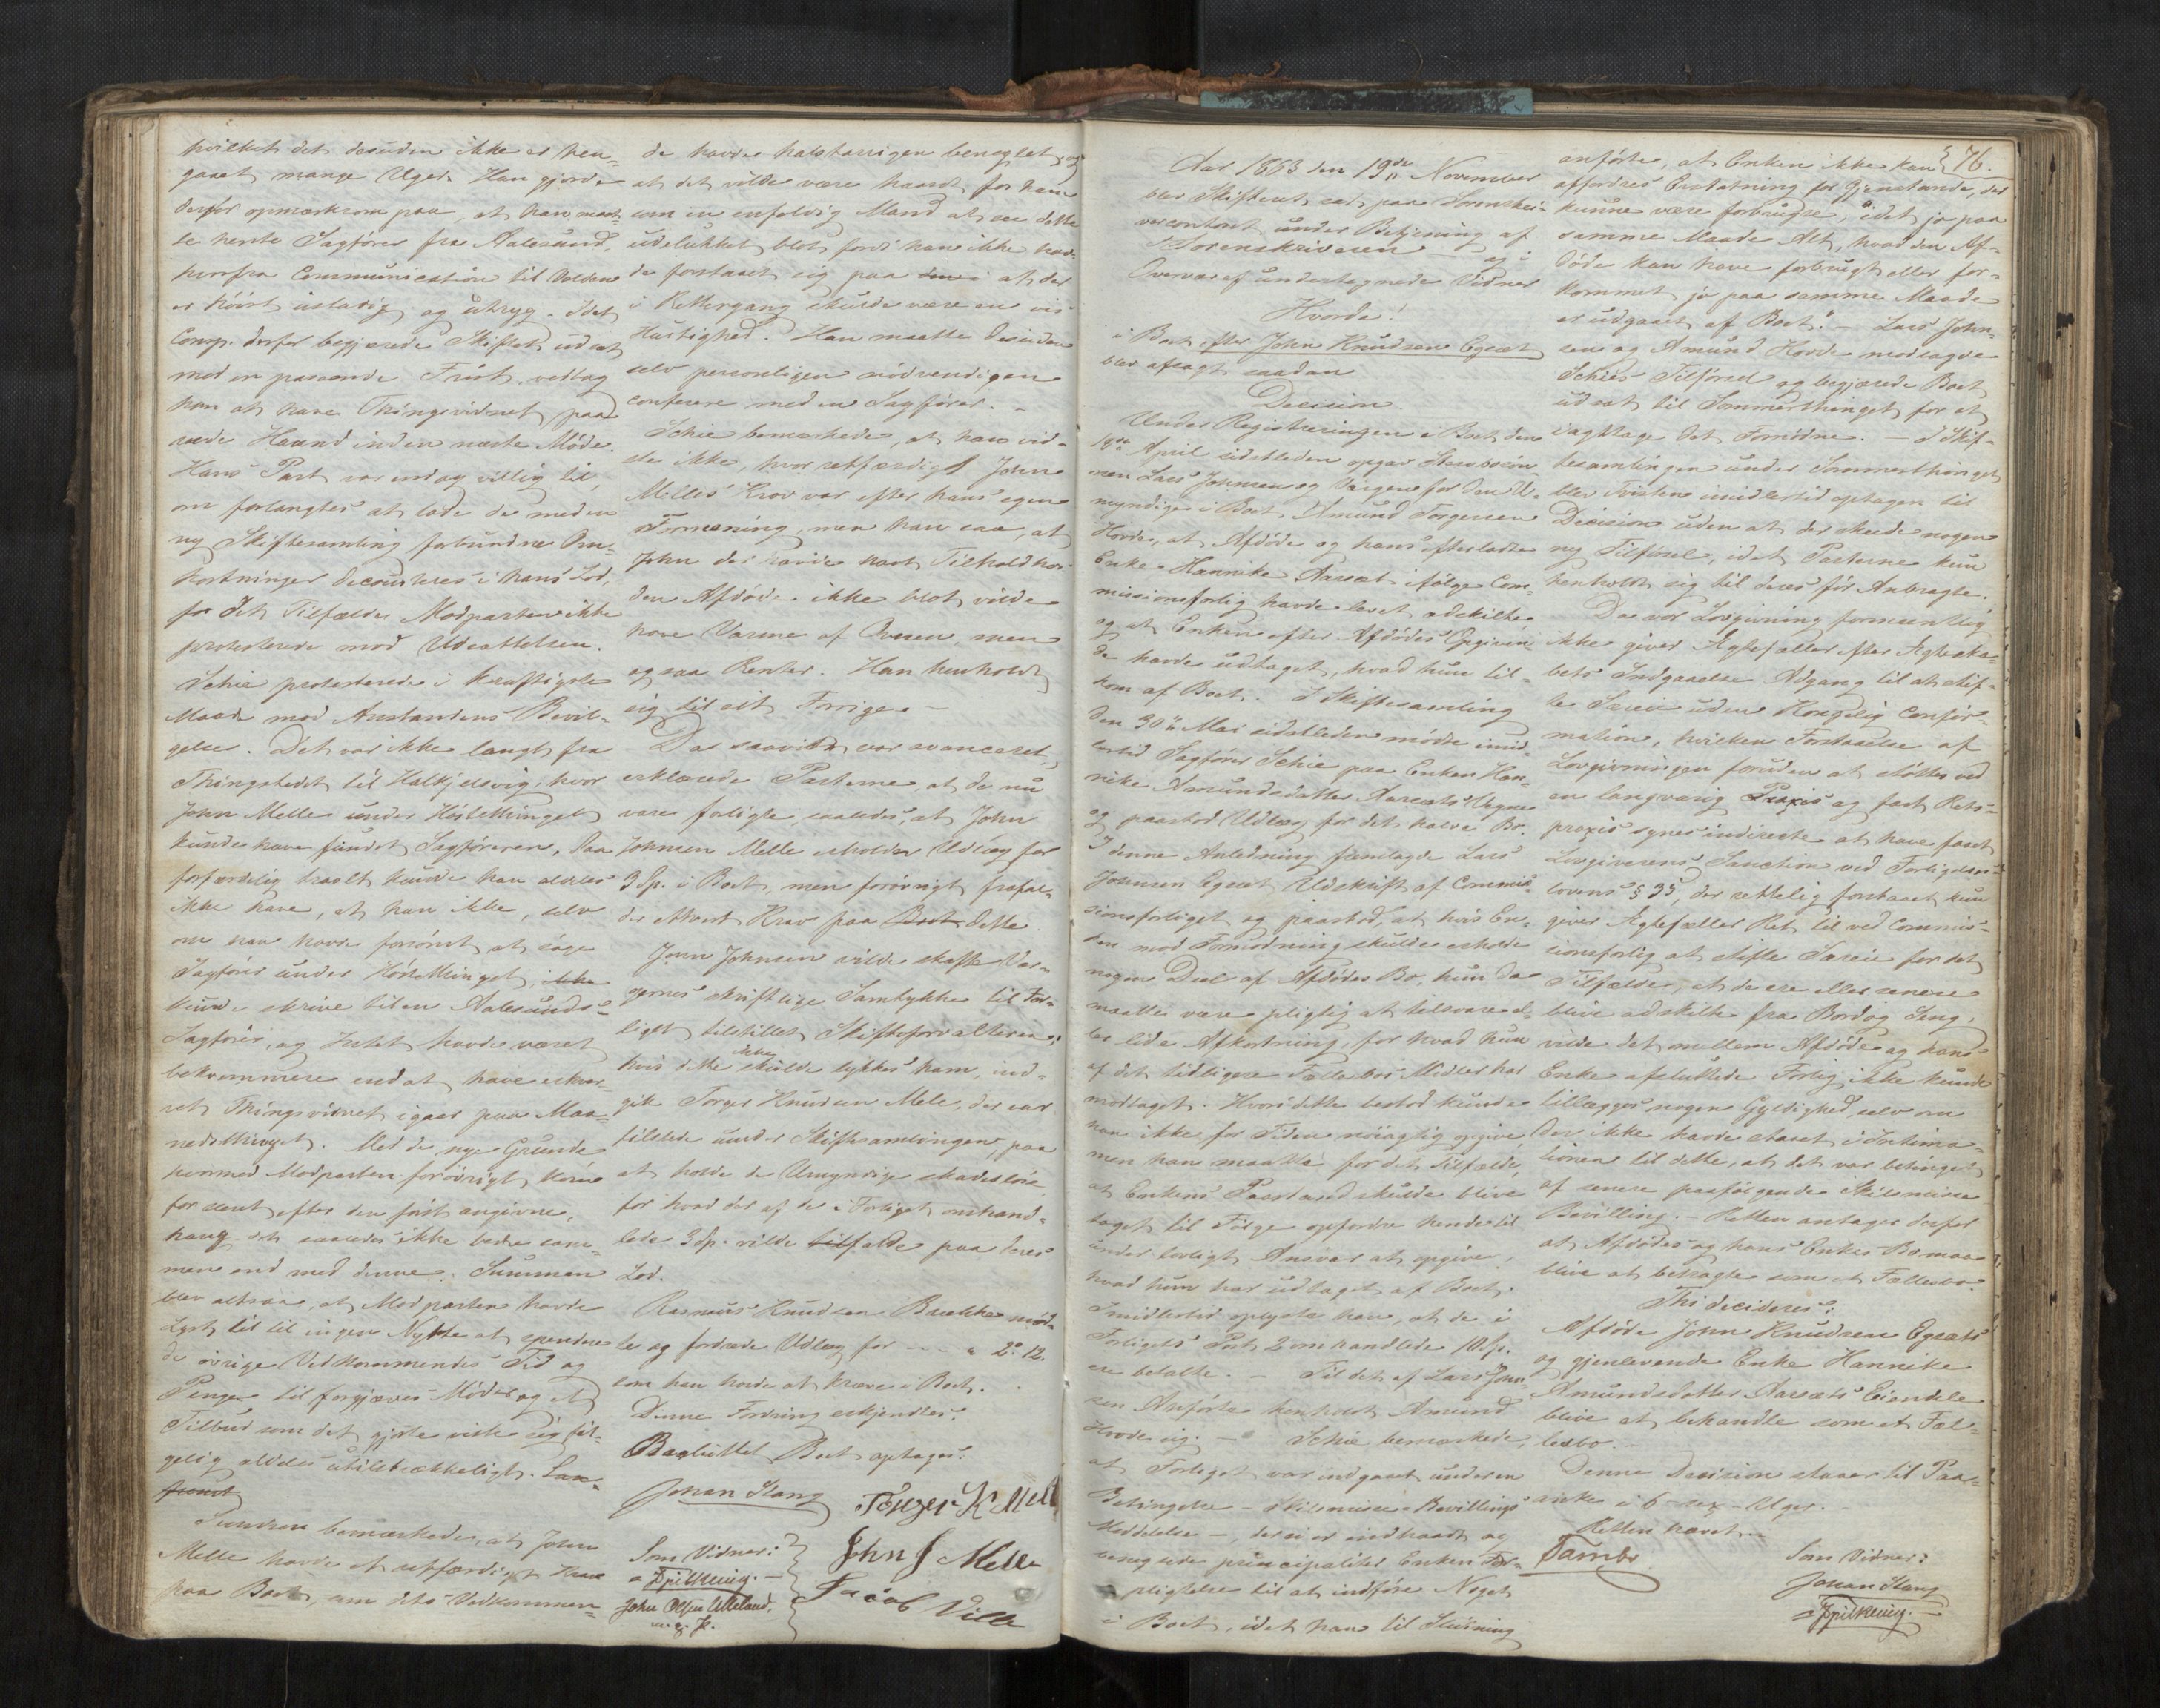 hvilket det desuden ikke er hen-
gaaet mange Uger. Han gjorde
derfor opmærksom paa, at han maat-
te hente Sagfører fra Aalesund,
hvorfra Communication til Volden
er høist ustadig og utryg. Idet
Comp. derfor begjærede Skiftet udsat
med en passende Frist, vedtog
han at have Thingsvidnet paa
rede Haand inden næste Møde.
Hans Part var endog villig til,
om forlangtes at lade de med en
ny Skiftesamling forbundne Om-
kostninger decourteres i hans Lod,
for det Tilfælde Modparten ikke
protesterede mod Udsættelsen.
Schie protesterede i kraftigste
Maade mod Anstandens Bevil-
gelse. Det var ikke langt fra
Thingstedet til Halkjelsvig, hvor
John Melle under Høstethinget
kunde have fundet Sagføreren. Saa
forfærdelig travlt kunde han aldeles
ikke have, at han ikke, selv
om han havde forsømt at søge
Sagfører under Høstethinget, ikke
kunde skrive til en Aalesunds-
Sagfører, og Intet havde været
bekvemmere end at have erhver-
vet Thingsvidnet igaar paa Maa-
nedsthinget. Med de nye Grunde
hvormed Modparten forøvrigt kom
for seent efter den først angivne,
hang det saaledes ikke bedre sam-
men end med denne. Summen
blev altsaa, at Modparten havde
Lyst til til ingen Nytte at spendere
de øvrige Vedkommendes Tid og
Penge til forgjæves Møder og et
Tilbud som det gjorte viste sig føl-
gelig aldeles utilstrækkeligt.
Sundsen bemærkede, at John
Melle havde et retfærdigt Krav
paa Boet, om dets Vedkommen-
de havde halsstarrigen benegtet, og
at det vilde være haardt for ham
som en enfoldig Mand at see dette
udelukket blot fordi han ikke hav-
de forstaaet sig paa at der
i Rettergang skulde være en vis
Hurtighed. Han maatte desuden
selv personligen nødvendigen
conferere med en Sagfører. -
Schie bemærkede, at han vid-
ste ikke, hvor retfærdigt John
Melles Krav var efter hans egen
Formening, men han saa, at
John der havde havt Tilhold hos
den Afdøde ikke blot vilde
have Varme af Ovnen, men
og saa Renter. Han henholdt
sig til sit Forrige. -
Da saavidt var avanceret,
erklærede Parterne, at de nu
vare forligte, saaledes, at John
Johnsen Melle erholder Udlæg for
3 Sp. i Boet, men forøvrigt frafal-
der ethvert Krav paa Boet dette.
John Johnsen vilde skaffe Vær-
gernes skriftlige Samtykke til For-
liget tilstillet Skifteforvalteren;
hvis dette ikke skulde lykkes ham, ind-
gik Torger Knudsen Mele, der var
tilstede under Skiftesamlingen, paa
at holde de Umyndige skadesløse
for hvad der af de i Forliget omhand-
lede 3 Sp. vilde tilfalde paa deres
Lod.
Rasmus Knudsen Brække mød-
te og fordrede Udlæg for - - - " 2. 12.
som han havde at kræve i Boet.
Denne Fordring erkjendtes.
Besluttet Boet optages.
Johan Stang
Torger K Mell
Som Vidner:
John J Melle
Spilkevig.
John Olsen Ulleland,
m. p. P.
Jacob Vill
76.
Aar 1863 den 19de November
blev Skifteret sat paa Sorenskri-
vercontoret under Betjening af
Sorenskriveren og i
Overvær af undertegnede Vidner
Hvorda!
i Boet efter John Knudsen Egsæt
blev afsagt saadan
Decision
Under Registreringen i Boet den
18de April sidstleden opgav Stervboen
men Lars Johnsen og Værgen for den U-
myndige i Boet Amund Torgersen
Hovde, at Afdøde og hans efterladte
Enke Hannike Aarsæt ifølge Com-
missionsforlig havde levet adskilte
og at Enken efter Afdødes Opgiven-
de havde udtaget, hvad hun til-
kom af Boet. I Skiftesamling
den 30te Mai sidstleden mødte imid-
lertid Sagfører Schie paa Enken Han-
nike Amundsdatter Aarsæts Vegne
og paastod Udlæg for det halve Bo.
I denne Anledning fremlagde Lars
Johnsen Egsæt Udskrift af Commis-
sionsforliget og paastod, at hvis En-
ken mod Formodning skulde erholde
nogen Deel af Afdødes Bo, hun da
maatte være pligtig at tilsvare el-
ler lide Afkortning, for hvad hun
af det tidligere Fællesbos Midler har
modtaget. Hvori dette bestod kunde
han ikke for Tiden nøiagtig opgive
men han maatte for det Tilfælde,
at Enkens Paastand skulde blive
taget til Følge opfordre hende til
under lovligt Ansvar at opgive,
hvad hun har udtaget af Boet.
Imidlertid oplyste han, at de i
Forligets Post 2 omhandlede 10 Sp.
ere betalte. - Til det af Lars John-
sen Anførte henholdt Amund
Hovde sig. - Schie bemærkede,
at Forliget var indgaaet under en
Betingelse - Skilsmisse-Bevillings
Meddelelse -, der ei er indtraadt og
benegtede principaliter Enkens For-
pligtelse til at indføre Noget
i Boet, idet han til Slutning
anførte, at Enken ikke kan
affordres Erstatning for Gjenstande, der
kunne være forbrugte, idet jo paa
samme Maade Alt, hvad den Af-
døde kan have forbrugt eller for-
kommet jo paa samme Maade
er udgaaet af Boet. - Lars John-
sen og Amund Hovde modsagde
Schies Tilførsel og begjærede Boet
udsat til Sommerthinget for at
iagttage det Fornødne. - I Skif-
tesamlingen under Sommerthinget
blev Tvisten imidlertid optagen til
Decision uden at der skede nogen
ny Tilførsel, idet Parterne kun
henholdt sig til deres før Anbragte.
Da vor Lovgivning formeentlig
ikke giver Ægtefæller efter Ægteska-
bets Indgaaelse Adgang til at stif-
te Særeie uden Kongelig Confir-
mation, hvilken Forstaaelse af
Lovgivningen foruden at støttes ved
en langvarig Praxis og fast Rets-
praxis synes indirecte at have faaet
Lovgiverens Sanction ved Forligelses-
lovens § 35, der rettelig forstaaet kun
giver Ægtefæller Ret til ved Commis-
sionsforlig at stifte Særeie for det
Tilfælde, at de ere eller senere
blive adskilte fra Bord og Seng,
vilde det mellem Afdøde og hans
Enke afsluttede Forlig ikke kunde
tillægges nogen Gyldighed, selv om
der ikke havde staaet i Intima-
tionen til dette, at det var betinget
af senere paafølgende Skilsmisse
Bevilling. - Retten antager derfor
at Afdødes og hans Enkes Bo maa
blive at betragte som et Fællesbo.
Thi decideres:
Afdøde John Knudsen Egsæts
og gjenlevende Enke Hannike
Amundsdatter Aarsæts Eiendele
blive at behandle som et Fæl-
lesbo. -
Denne Decision staaer til Paa-
anke i 6 - sex - Uger. -
Retten hævet. -
Tambs
Som Vidner:
Johan Stang
Spilkevig.